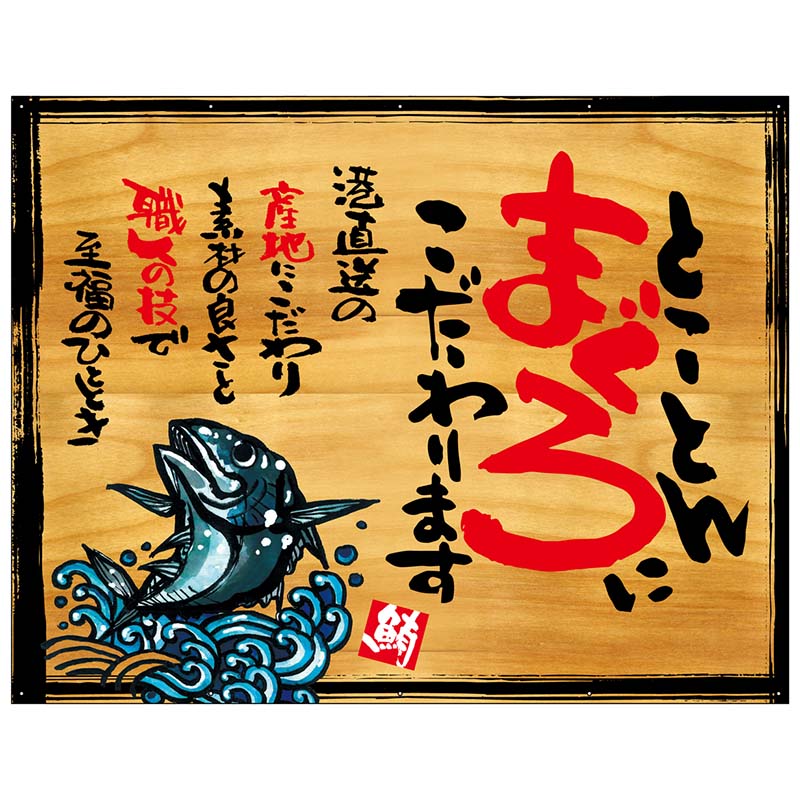 とことん
まぐろに
こだわります
港直送の
産地にこだわり
素材の良さと
職人の技で
至福のひととき
鮪